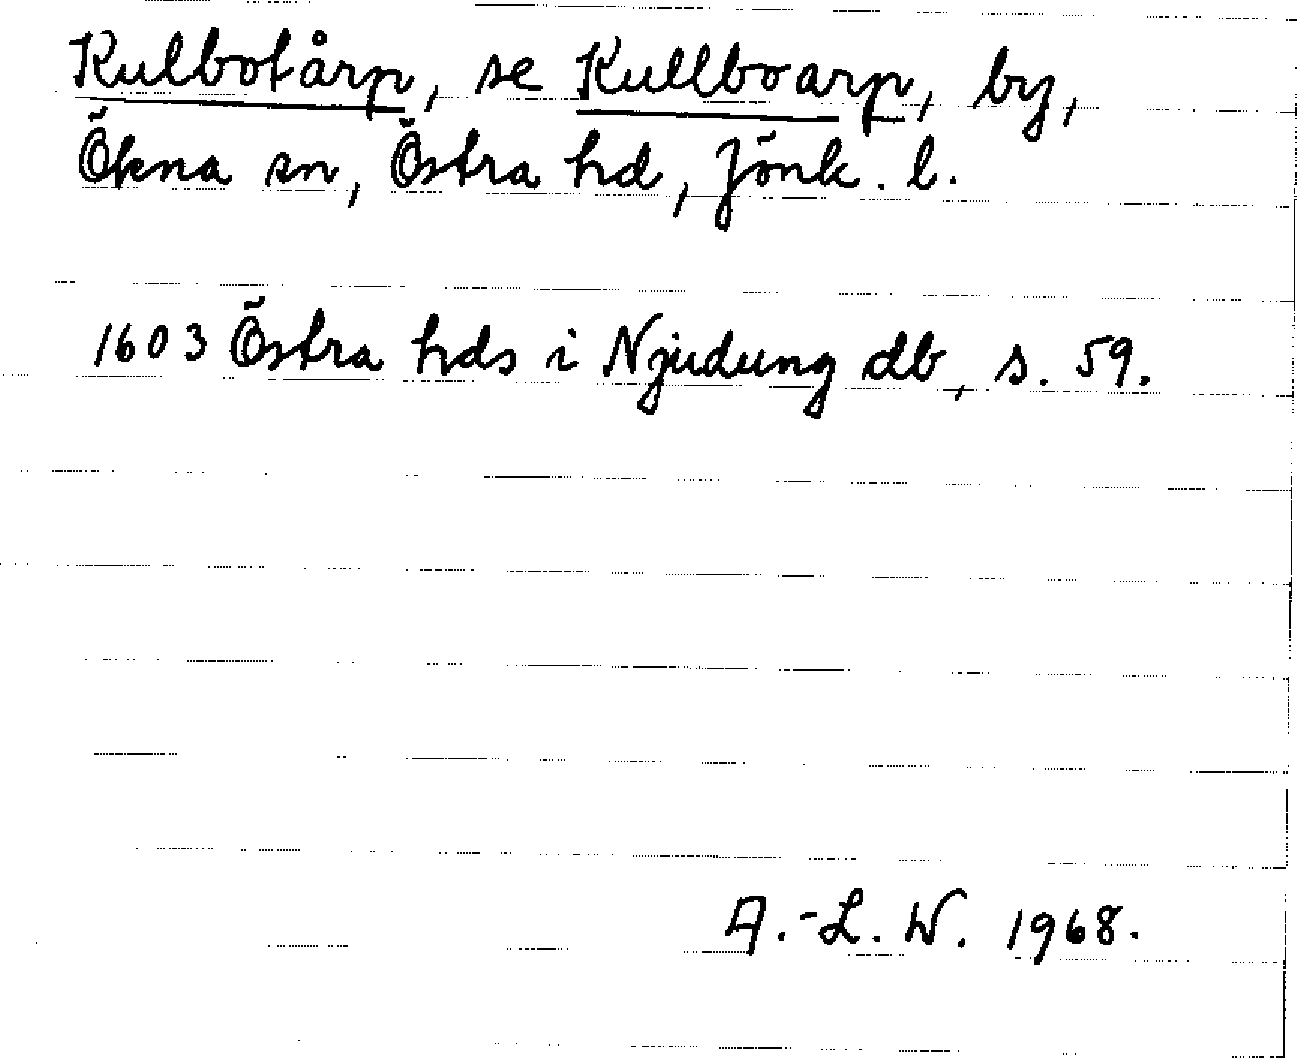 Kulbotårp, se Kullboarp, by,
Ökna sn, Östra hd, Jönk. l.
1603 Östra hds i Njudung db, s. 59.
A.-L. W. 1968.